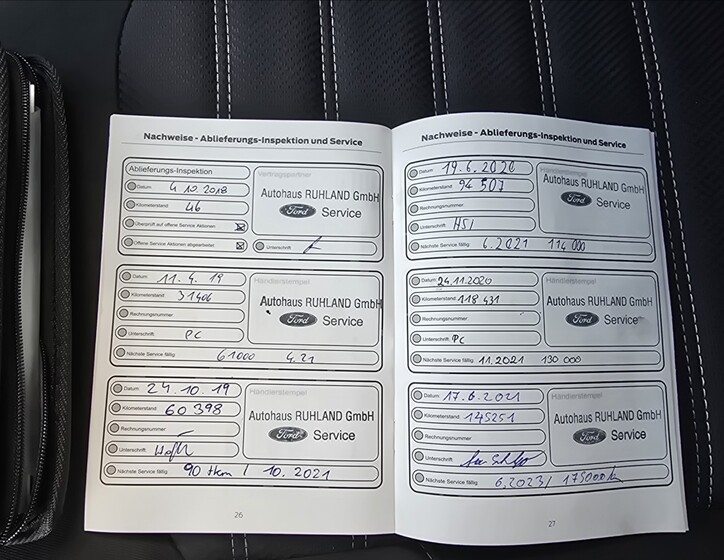 Nachweise - Ablieferungs-Inspektion und Service
Ablieferungs-Inspektion
Datum 4.10.2018
Kilometerstand 46
Überprüft auf offene Service Aktionen
Offene Service Aktionen abgearbeitet
Vertragspartner
Autohaus RUHLAND GmbH
Ford Service
Unterschrift
Datum 11.4.19
Kilometerstand 31406
Rechnungsnummer
Unterschrift PC
Händlerstempel
Autohaus RUHLAND GmbH
Ford Service
Nächste Service fällig 61000 4.21
Datum 24.10.19
Kilometerstand 60 398
Rechnungsnummer
Unterschrift
Händlerstempel
Autohaus RUHLAND GmbH
Ford Service
Nächste Service fällig 90 tkm / 10.2021
26
Nachweise - Ablieferungs-Inspektion und Service
Datum 19.6.2020
Kilometerstand 94 507
Rechnungsnummer
Unterschrift
Händlerstempel
Autohaus RUHLAND GmbH
Ford Service
Nächste Service fällig 6.2021 114 000
Datum 24.11.2020
Kilometerstand 118 431
Rechnungsnummer
Unterschrift PC
Händlerstempel
Autohaus RUHLAND GmbH
Ford Service
Nächste Service fällig 11.2021 130 000
Datum 17.6.2021
Kilometerstand 145251
Rechnungsnummer
Unterschrift
Händlerstempel
Autohaus RUHLAND GmbH
Ford Service
Nächste Service fällig 6.2023 / 175000
27